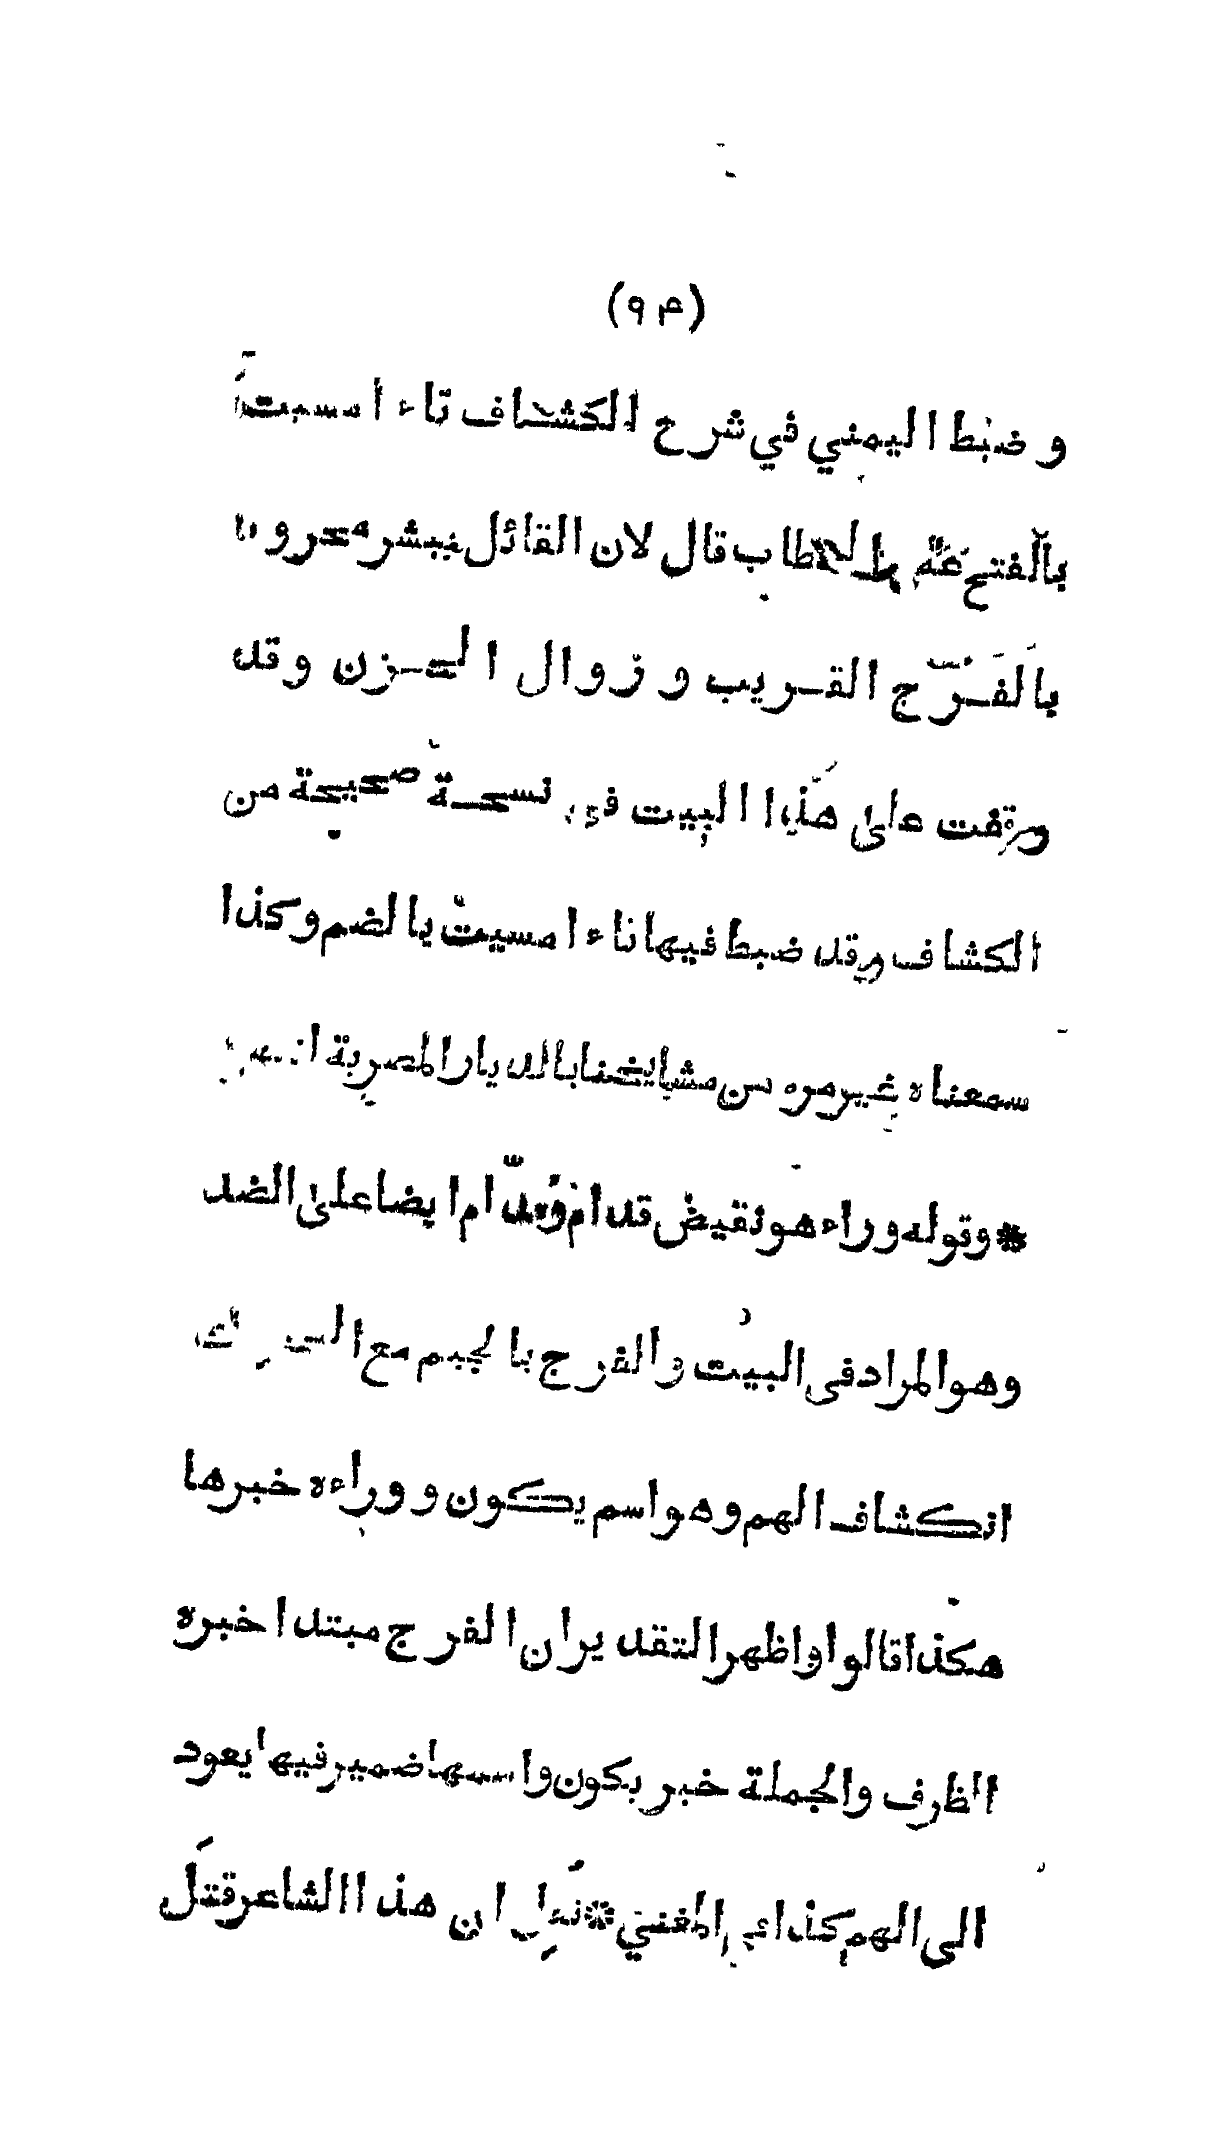 (٩٣)
وضبط اليمني في شرح الكشاف تاء امسيت
بالفتح على الخطاب قال لان القائل يبشر محزونا
بالفَرَج القريب و زوال الحزن وقد
وقفت على هذا البيت في نسخة صحيحة من
الكشاف وقد ضبط فيها تاء امسيت بالضم وكذا
سمعناه غير مره من مشايخنا بالديار المصرية
* وقوله وراء هو نقيض قدام وقدّام ايضا على الضد
وهو المراد في البيت والفرج بالجيم مع
انكشاف الهم وهو اسم يكون و وراءه خبرها
هكذا قالوا واظهر التقدير ان الفرج مبتدا خبره
الظرف والجملة خبر يكون واسمها ضمير فيها يعود
الى الهم كذا في المغني * ان هذا الشاعر قتل